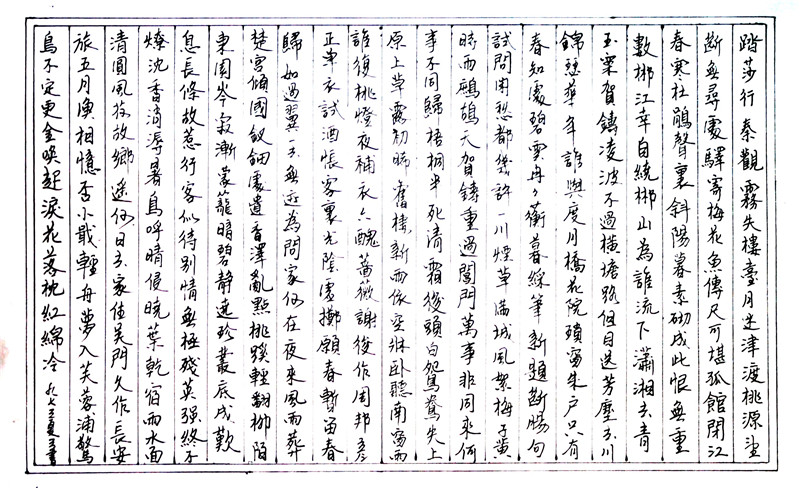 踏莎行秦觀霧失樓臺月迷津渡桃源望
斷無尋處驛寄梅花魚傳尺可堪孤館閉江
春寒杜鵑聲裏斜陽暮素砌成此恨無重
數郴江幸自繞郴山為誰流下瀟湘去青
玉案賀鑄凌波不過橫塘路但目送芳塵去川
錦瑟華年誰與度月橋花院瑣窗朱戶只有
春知處碧雲冉々蘅暮綵筆新題斷腸句
試問閒愁都幾許一川煙草滿城風絮梅子黃
時雨鷓鴣天賀鑄重過閶門萬事非同來何
事不同歸梧桐半死清霜後頭白鴛鴦失上
原上草露初晞舊棲新兩依空牀卧聽南窗雨
誰復挑燈夜補衣六醜薔薇謝後作周邦彥
正單衣試酒悵客裏光陰虛擲願春暫留春
歸如過翼一去無迹為問家何在夜來風雨葬
楚宮傾國釵鈿處遺香澤亂點桃蹊輕翻柳陌
東園岑寂漸蒙籠暗碧靜遶珍叢底成歎
息長條故惹行客似待別情無極殘英強終不
燎沈香消溽暑鳥呼晴侵曉葉乾宿雨水面
清圓風荷故鄉遙何日去家住吳門久作長安
旅五月漁相憶否小檝輕舟夢入芙蓉浦驚
烏不定更金喚起淚花落枕紅綿冷